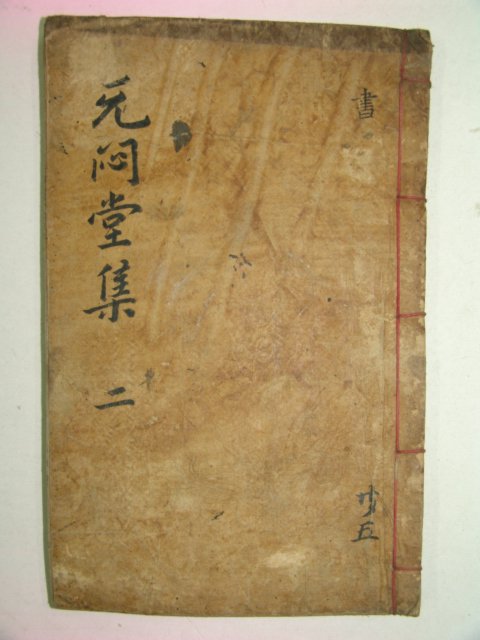 書
共五
无悶堂集 二